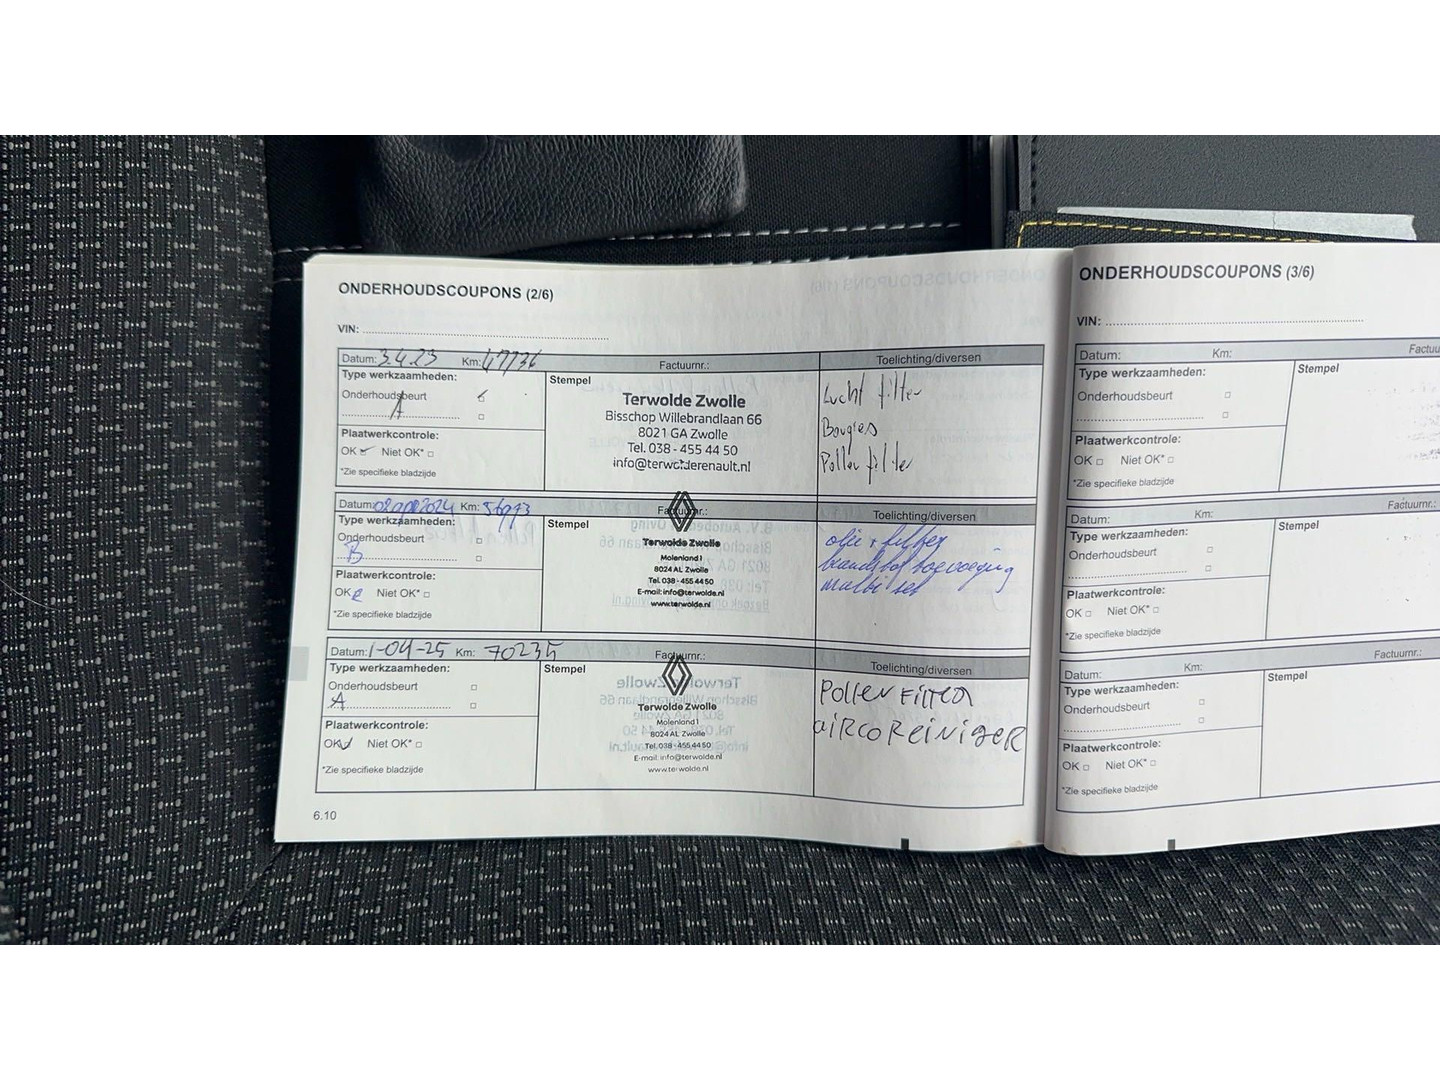 ONDERHOUDSCOUPONS (2/6)
VIN:
Datum: 3.4.23 Km: 47736 Factuurnr.: Toelichting/diversen
Type werkzaamheden:
Onderhoudsbeurt
A
Plaatwerkcontrole:
OK Niet OK*
*Zie specifieke bladzijde
Stempel
Terwolde Zwolle
Bisschop Willebrandlaan 66
8021 GA Zwolle
Tel. 038 - 455 44 50
info@terwolderenault.nl
Lucht filter
Bougies
Pollen filter
Datum: Km: 56973 Factuurnr.: Toelichting/diversen
Type werkzaamheden:
Onderhoudsbeurt
B
Plaatwerkcontrole:
OK Niet OK*
*Zie specifieke bladzijde
Stempel
Terwolde Zwolle
Molenland 1
8024 AL Zwolle
Tel. 038 - 455 44 50
E-mail: info@terwolde.nl
www.terwolde.nl
olie + filter
brandstof toevoeging
multi set
Datum: 1-04-25 Km: 70235 Factuurnr.: Toelichting/diversen
Type werkzaamheden:
Onderhoudsbeurt
A
Plaatwerkcontrole:
OK Niet OK*
*Zie specifieke bladzijde
Stempel
Terwolde Zwolle
Molenland 1
8024 AL Zwolle
Tel. 038 - 455 44 50
E-mail: info@terwolde.nl
www.terwolde.nl
Pollen Filter
aircoreiniger
6.10
ONDERHOUDSCOUPONS (3/6)
VIN:
Datum: Km: Factuu
Type werkzaamheden:
Onderhoudsbeurt
Plaatwerkcontrole:
OK Niet OK*
*Zie specifieke bladzijde
Stempel
Datum: Km: Factuurnr.:
Type werkzaamheden:
Onderhoudsbeurt
Plaatwerkcontrole:
OK Niet OK*
*Zie specifieke bladzijde
Stempel
Datum: Km: Factuurnr.:
Type werkzaamheden:
Onderhoudsbeurt
Plaatwerkcontrole:
OK Niet OK*
*Zie specifieke bladzijde
Stempel